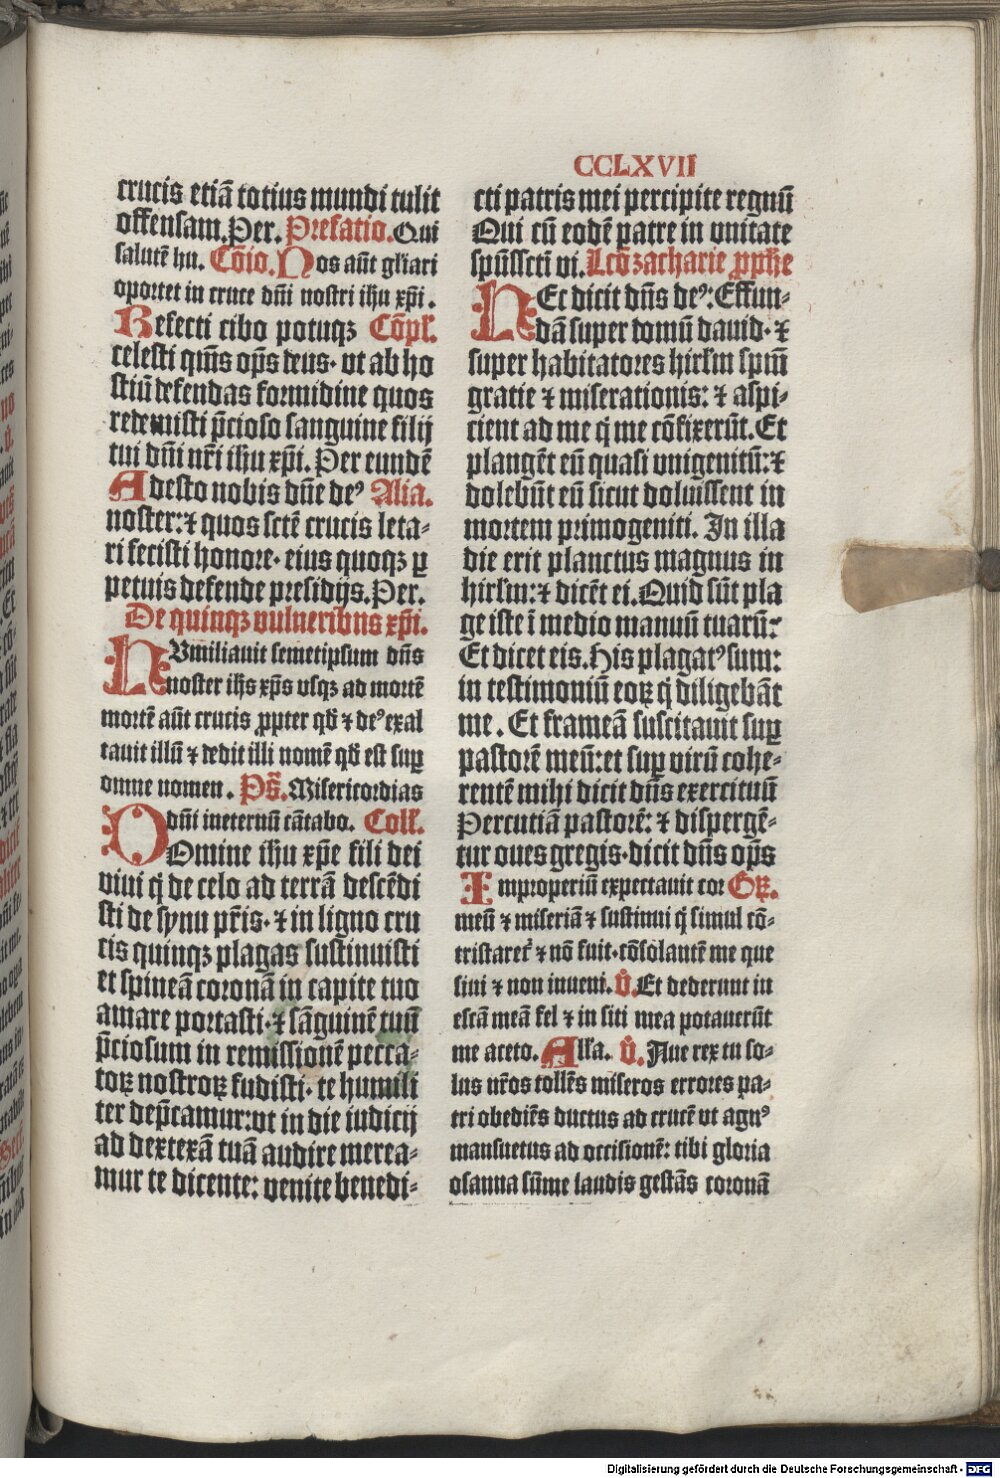 CCLXVII
crucis etiā totius mundi tulit
offensam. Per. Prefatio. Qui
salutē hu. Cōio. Nos aūt gl̄iari
oportet in cruce dn̄i nostri ihu xp̄i.
Refecti cibo potuqȝ Cōpl'.
celesti qm̄s op̄s deus· vt ab ho
stiū defendas formidine quos
redemisti p̄cioso sanguine filij
tui dn̄i nr̄i ihu xp̄i. Per eundē
Adesto nobis dn̄e deꝰ Alia.
noster: ⁊ quos sctē crucis leta-
ri fecisti honore· eius quoqȝ ꝑ
petuis defende presidijs. Per.
De quinqȝ vulneribus xp̄i.
HVmiliauit semetipsum dn̄s
noster ih̄s xp̄s vsqȝ ad mortē
mortē aūt crucis ꝓpter qd̄ ⁊ deꝰ exal
tauit illū ⁊ dedit illi nomē qd̄ est suꝑ
omne nomen. Ps̄. Misericordias
dn̄i ineternū cātabo. Coll'.
DOmine ihu xp̄e fili dei
viui q̇ de celo ad terrā descēdi
sti de synu pr̄is· ⁊ in ligno cru
cis quinqȝ plagas sustinuisti
et spineā coronā in capite tuo
amare portasti· ⁊ sāguinē tuū
p̄ciosum in remissionē pecca-
toꝝ nostroꝝ fudisti· te humili
ter dep̄camur: vt in die iudicij
ad dexterā tuā audire merea-
mur te dicente: venite benedi-
cti patris mei percipite regnū
Qui cū eodē patre in vnitate
spūssctī vi. Lcō zacharie ꝓph̄e
HEc dicit dn̄s deꝰ: Effun-
dā super domū dauid· ⁊
super habitatores hirlm̄ spm̄
gratie ⁊ miserationis: ⁊ aspi-
cient ad me q̇ me cōfixerūt. Et
plangēt eū quasi vnigenitū: ⁊
dolebūt eū sicut doluissent in
mortem primogeniti. In illa
die erit planctus magnus in
hirlm̄: ⁊ dicēt ei. Quid sūt pla
ge iste ī medio manuū tuarū:
Et dicet eis. His plagatꝰ sum:
in testimoniū eoꝝ q̇ diligebāt
me. Et frameā suscitauit suꝑ
pastorē meū: et suꝑ virū cohe-
rentē mihi dicit dn̄s exercituū
Percutiā pastorē: ⁊ dispergē-
tur oues gregis· dicit dn̄s op̄s
Improperiū expectauit cor Gꝝ.
meū ⁊ miseriā ⁊ sustinui q̇ simul cō-
tristaret̄ ⁊ nō fuit· cōsolantē me que
siui ⁊ non inueni. v̊. Et dederunt in
escā meā fel ⁊ in siti mea potauerūt
me aceto. All'a. v̊. Aue rex tu so-
lus nr̄os tollēs miseros errores pa-
tri obediēs ductus ad crucē vt agnꝰ
mansuetus ad occisionē: tibi gloria
osanna sūme laudis gestās coronā
Digitalisierung gefördert durch die Deutsche Forschungsgemeinschaft - DFG